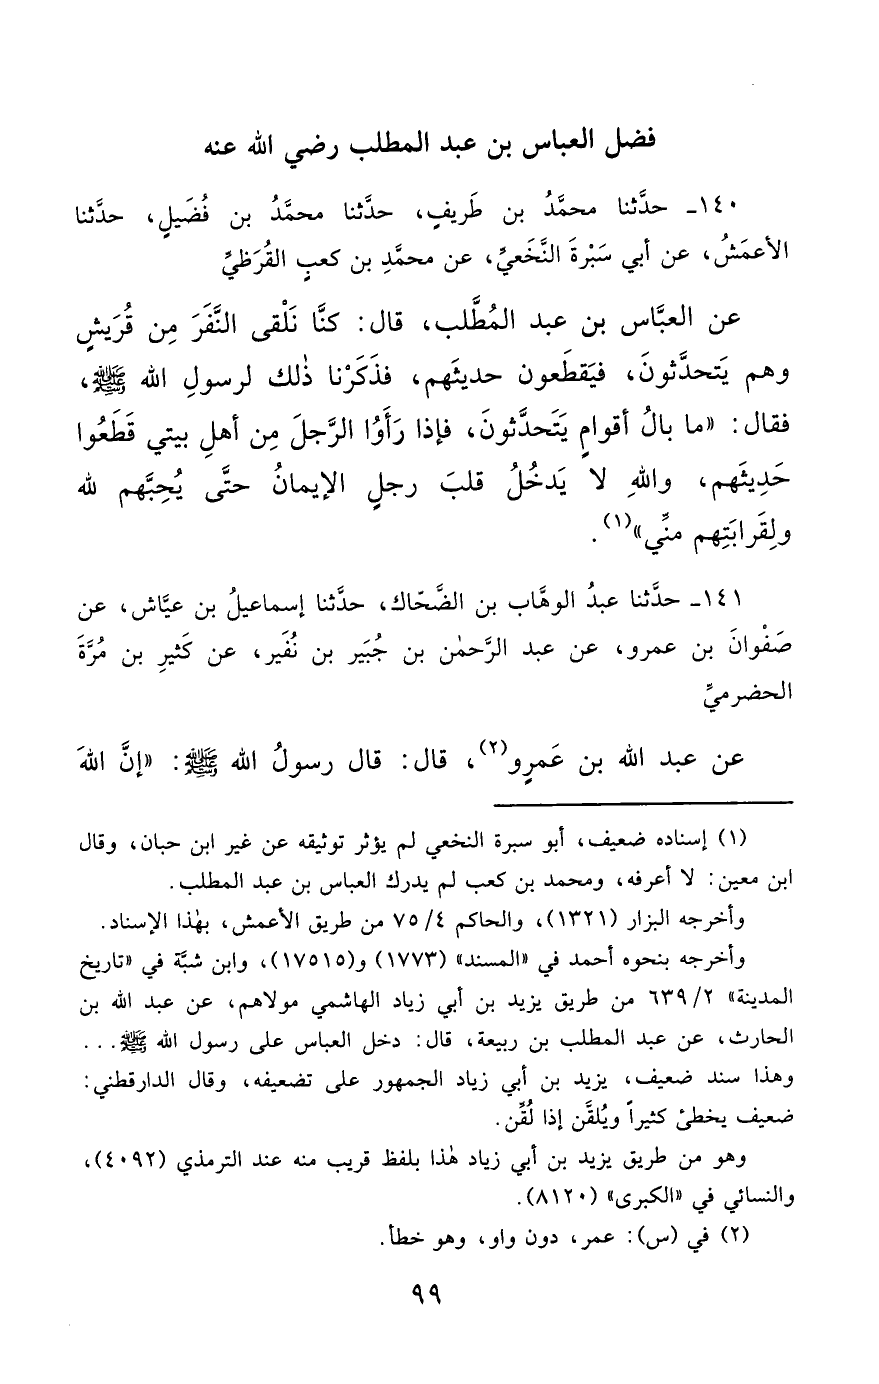 فضل العباس بن عبد المطلب رضي الله عنه
١٤٠ـ حدَّثنا محمَّدُ بن طَريفٍ، حدَّثنا محمَّدُ بن فُضَيلٍ، حدَّثنا
الأعمَشُ، عن أبي سَبْرةَ النَّخَعيِّ، عن محمَّدِ بن كعبٍ القُرَظيِّ
عن العبَّاس بن عبد المُطَّلب، قال: كنَّا نَلْقى النَّفَرَ مِن قُرَيشٍ
وهم يَتَحدَّثونَ، فيَقطَعون حديثَهم، فذَكَرْنا ذٰلك لرسولِ الله ﷺ،
فقال: «ما بالُ أقوامٍ يَتَحدَّثونَ، فإذا رَأَوُا الرَّجلَ مِن أهلِ بيتي قَطَعُوا
حَدِيثَهم، واللهِ لا يَدخُلُ قلبَ رجلٍ الإيمانُ حتَّى يُحِبَّهم لله
ولِقَرابَتِهم منِّي»(١).
١٤١ـ حدَّثنا عبدُ الوهَّاب بن الضَّحّاك، حدَّثنا إسماعيلُ بن عيَّاش، عن
صَفْوانَ بن عمرو، عن عبد الرَّحمٰن بن جُبَير بن نُفَير، عن كَثيرِ بن مُرَّةَ
الحضرميِّ
عن عبد الله بن عَمرٍو(٢)، قال: قال رسولُ الله ﷺ: «إنَّ اللهَ
(١) إسناده ضعيف، أبو سبرة النخعي لم يؤثر توثيقه عن غير ابن حبان، وقال
ابن معين: لا أعرفه، ومحمد بن كعب لم يدرك العباس بن عبد المطلب.
وأخرجه البزار (١٣٢١)، والحاكم ٤/ ٧٥ من طريق الأعمش، بهٰذا الإسناد.
وأخرجه بنحوه أحمد في «المسند» (١٧٧٣) و(١٧٥١٥)، وابن شبَّة في «تاريخ
المدينة» ٢/ ٦٣٩ من طريق يزيد بن أبي زياد الهاشمي مولاهم، عن عبد الله بن
الحارث، عن عبد المطلب بن ربيعة، قال: دخل العباس على رسول الله ﷺ...
وهذا سند ضعيف، يزيد بن أبي زياد الجمهور على تضعيفه، وقال الدارقطني:
ضعيف يخطئ كثيراً ويُلقَّن إذا لُقِّن.
وهو من طريق يزيد بن أبي زياد هٰذا بلفظ قريب منه عند الترمذي (٤٠٩٢)،
والنسائي في «الكبرى» (٨١٢٠).
(٢) في (س): عمر، دون واو، وهو خطأ.
٩٩